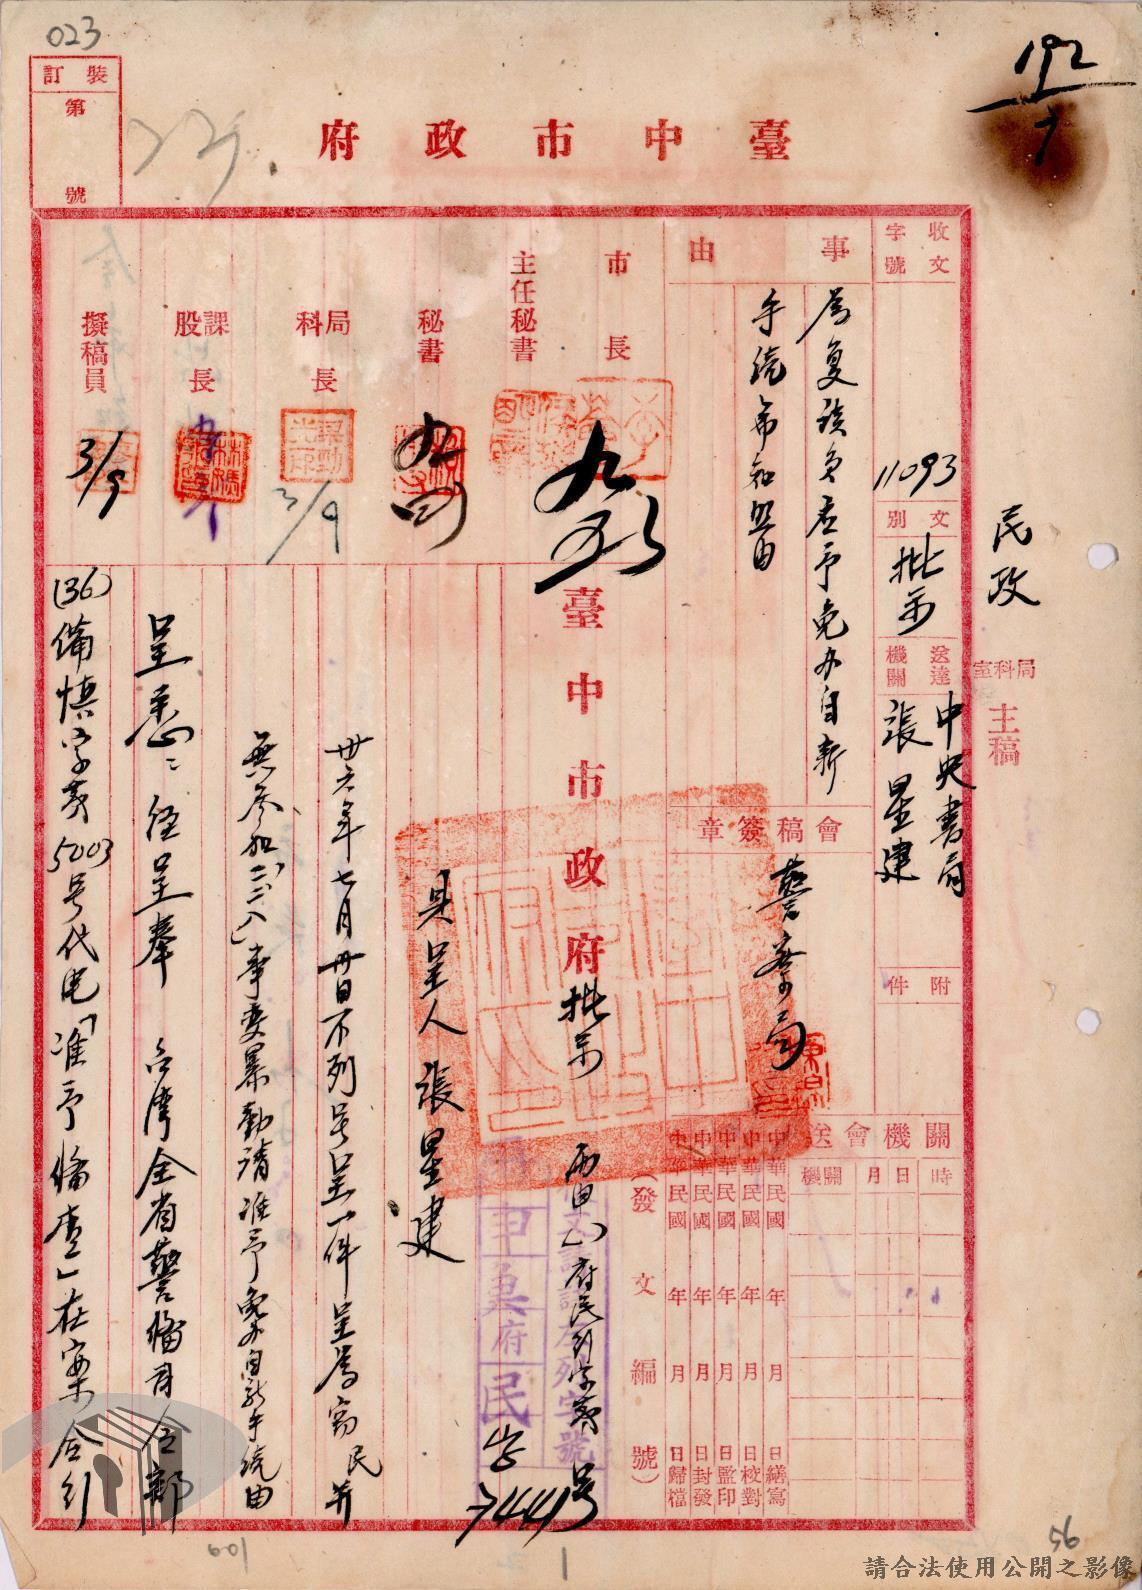 023
192
7
裝訂
第
號
臺中市政府
民政
局科室
主稿
收文
字號
11093
文別
批示
送達
機關
中央書局
張星建
附件
事
由
為复該員應予免办自新
手続希知照由
會稿簽章
警察局
關機會送
時
日
月
機關
中華民國 年 月 日繕寫
中華民國 年 月 日校對
中華民國 年 月 日監印
中華民國 年 月 日封發
中華民國 年 月 日歸檔
(發文編號)
市長
主任秘書
秘書
局科長
3/9
課股長
擬稿員
3/9
臺中市政府批示
府民行字第 号
府民字
7441
具呈人張星建
卅六年七月卅日不列号呈一件呈為窃民並
無參加「二二八」事变暴動請准予免办自新手続由
呈悉:経呈奉 台湾全省警備司令部
(36)備慎字第5003号代电「准予備查」在案合行
601
1
56
請合法使用公開之影像